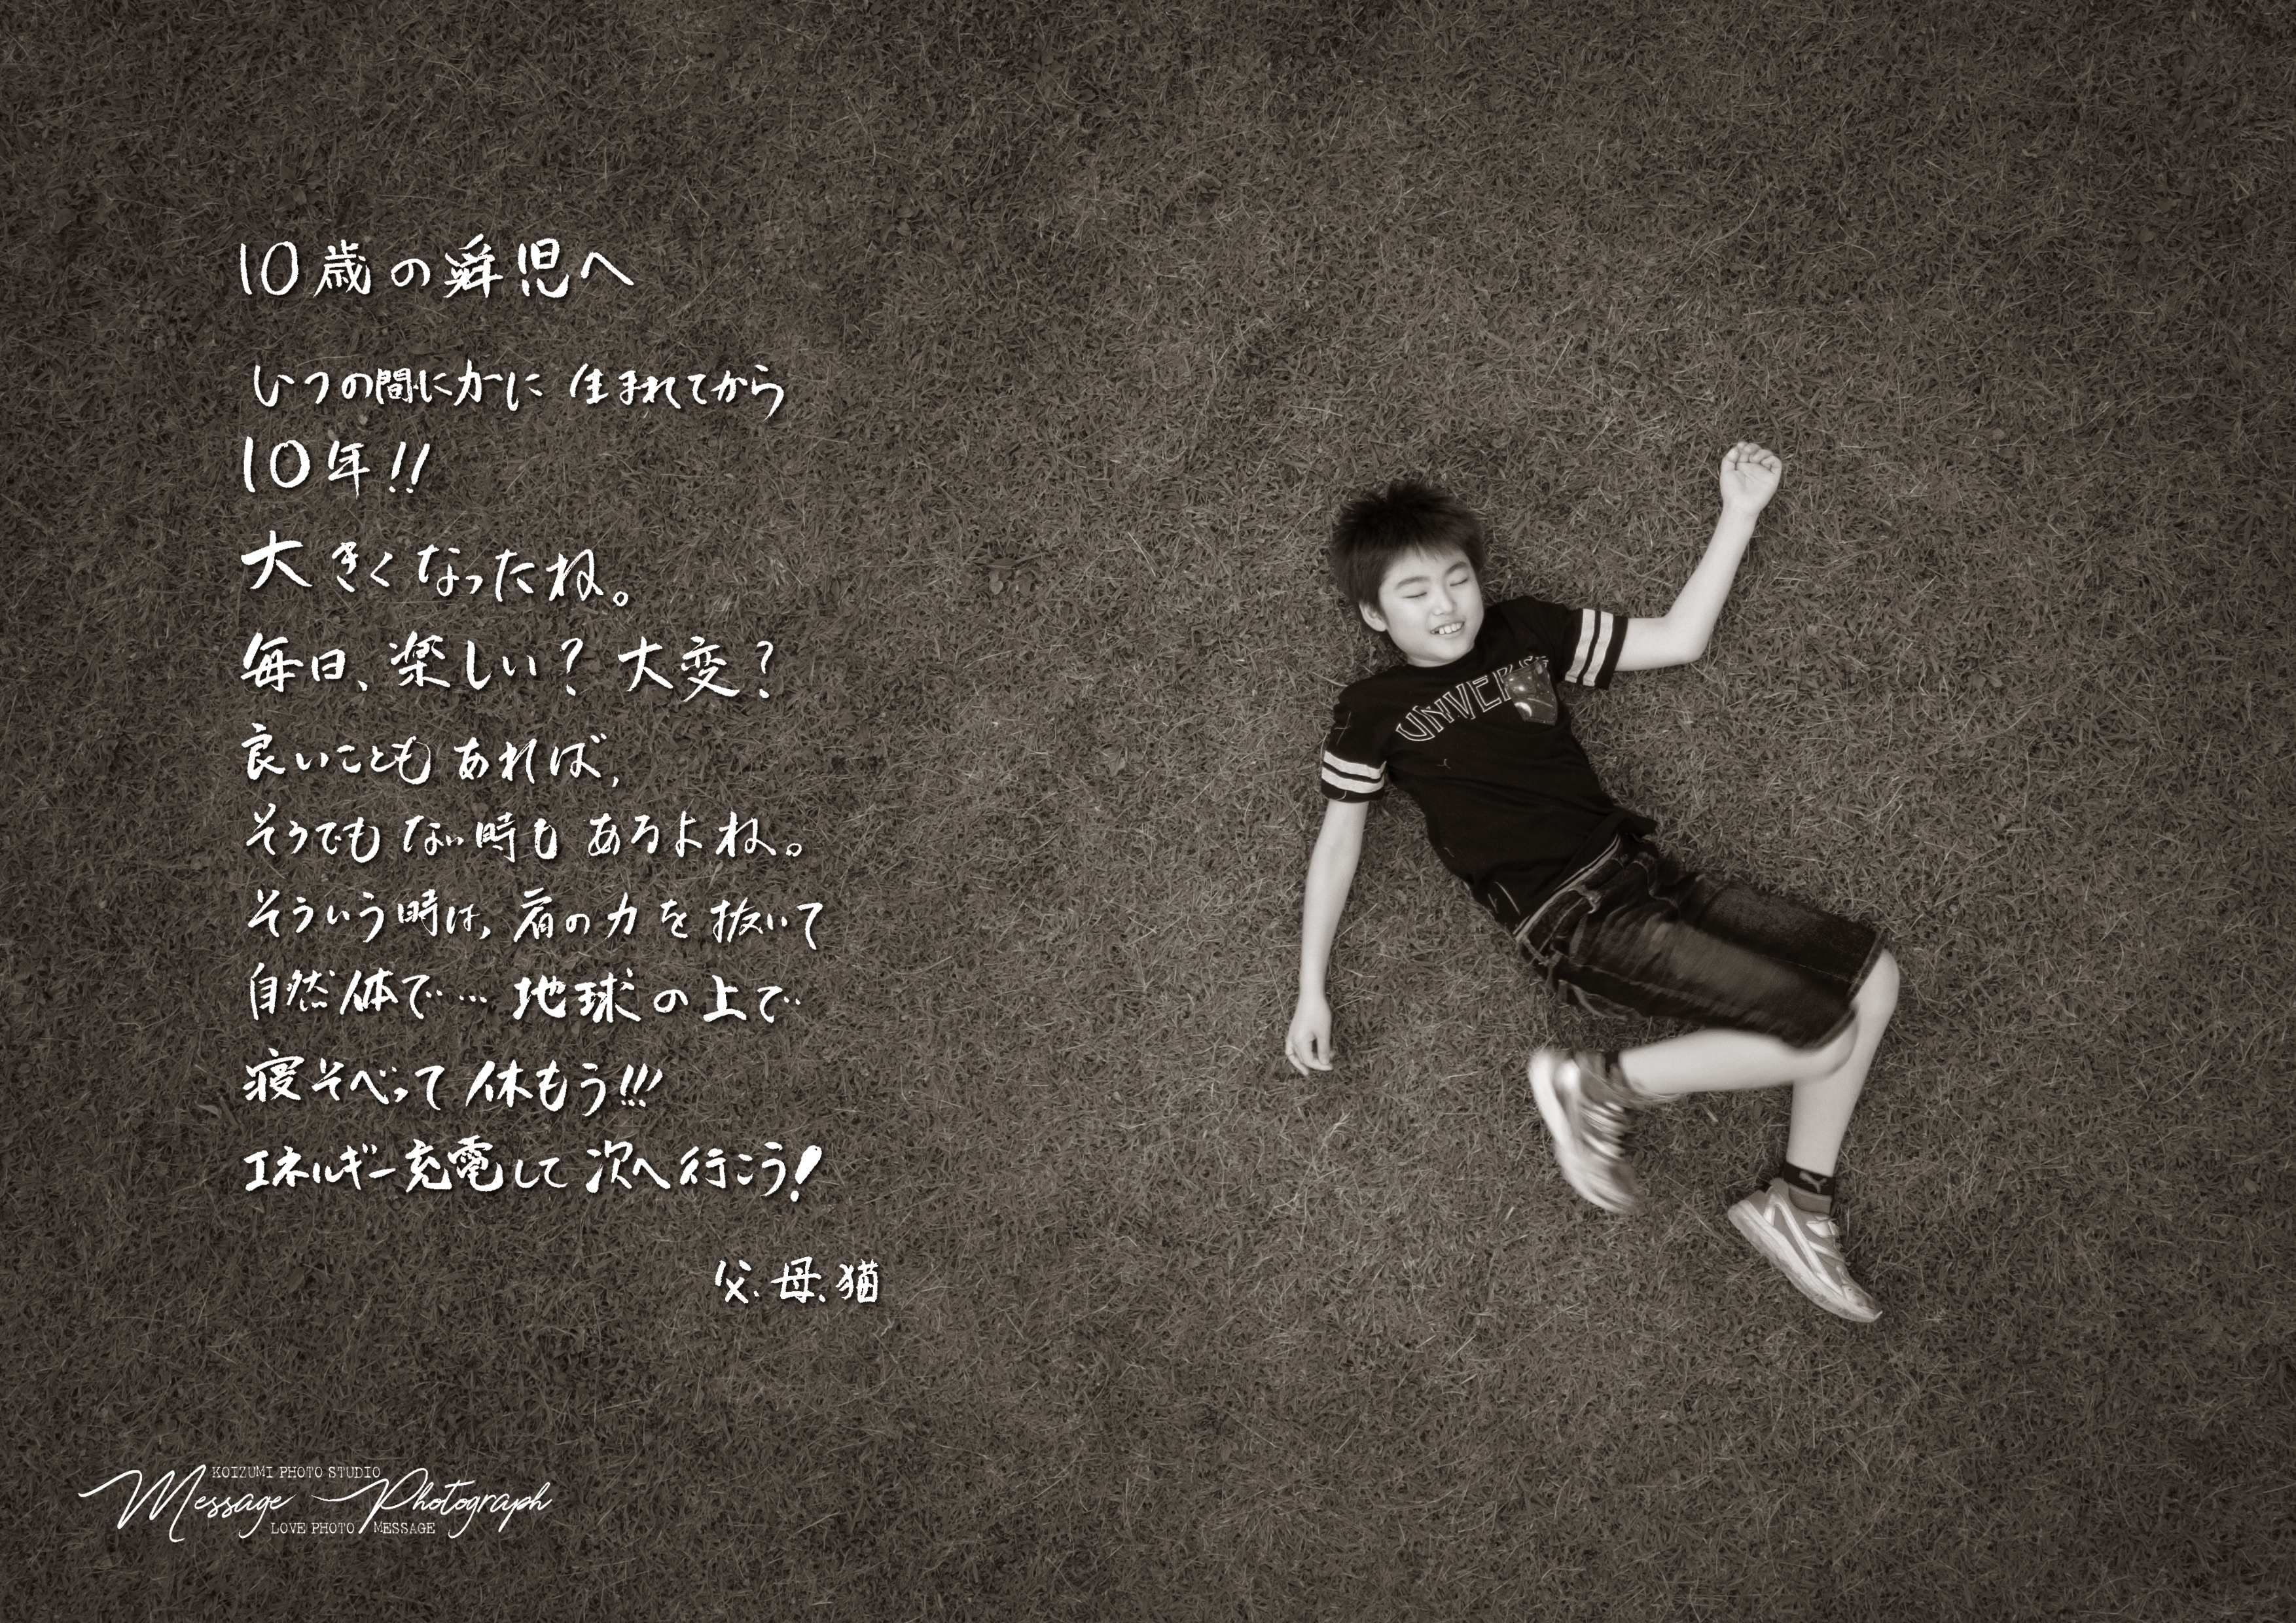 10歳の舜児へ
いつの間にかに 生まれてから
10年!!
大きくなったね。
毎日、楽しい? 大変?
良いことも あれば、
そうでも ない時も あるよね。
そういう時は、肩の力を抜いて
自然体で… 地球の上で
寝そべって 休もう!!!
エネルギー充電して 次へ行こう!
父、母、猫
KOIZUMI PHOTO STUDIO
Message Photograph
LOVE PHOTO MESSAGE